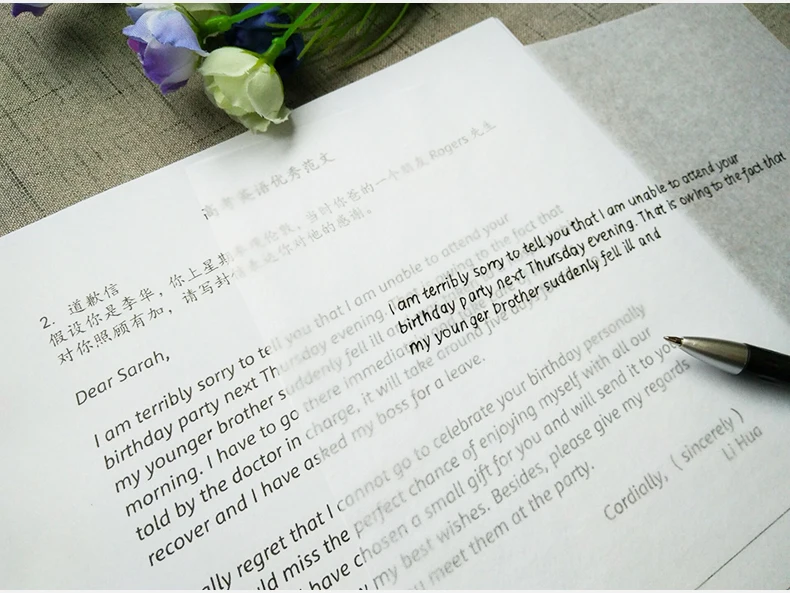 高考英语优秀范文
2. 道歉信
假设你是李华，你上星期参观伦敦，当时你爸的一个朋友 Rogers 先生
对你照顾有加，请写封信表达你对他的感谢。
Dear Sarah,
I am terribly sorry to tell you that I am unable to attend your
birthday party next Thursday evening. owing to the fact that
my younger brother suddenly fell ill
morning. I have to go there immediately
told by the doctor in charge, it will take around five days
recover and I have asked my boss for a leave.
regret that I cannot go to celebrate your birthday personally
miss the perfect chance of enjoying myself with all our
have chosen a small gift for you and will send it to you
my best wishes. Besides, please give my regards
meet them at the party.
Cordially, ( sincerely )
Li Hua
I am terribly sorry to tell you that I am unable to attend your
birthday party next Thursday evening. That is owing to the fact that
my younger brother suddenly fell ill and